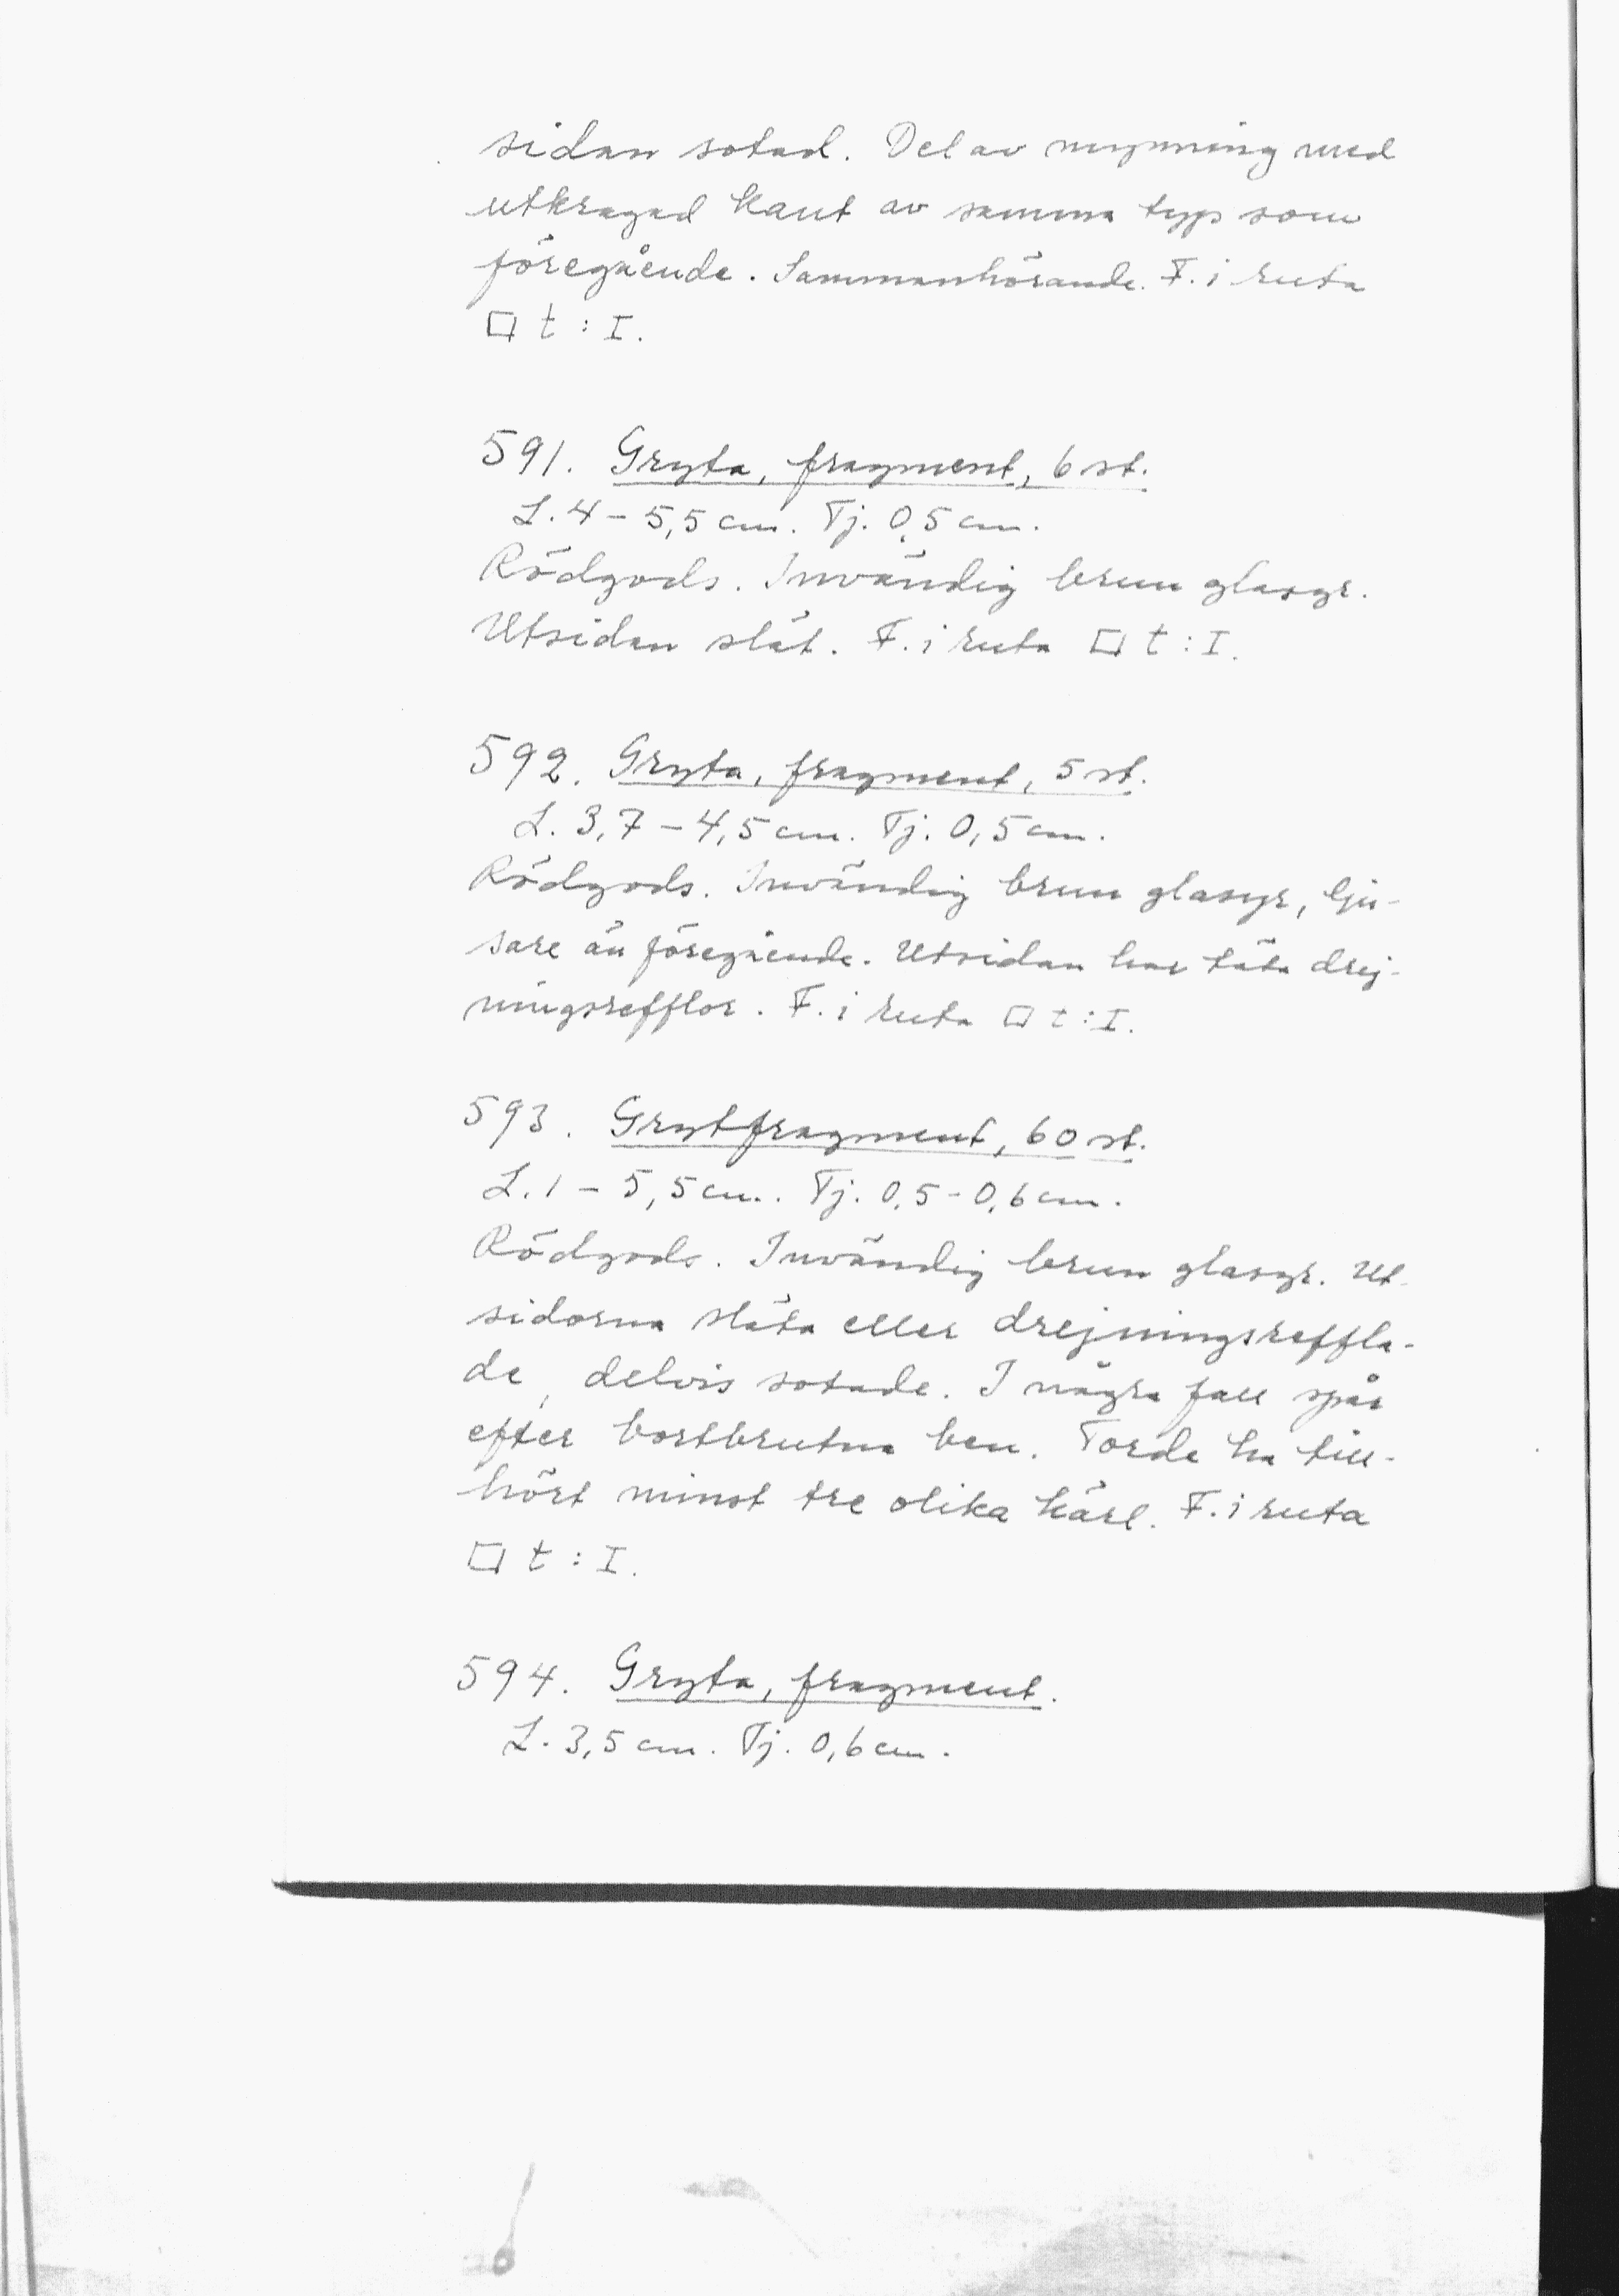 sidan sotad. Del av mynning med
utkragad kant av samma typ som
föregående. Sammanhörande. F. i ruta
□ t : I.
591. Gryta, fragment, 6 st.
L. 4 - 5,5 cm. Tj. 0,5 cm.
Rödgods. Invändig brun glasyr.
Utsidan slät. F. i ruta □ t : I.
592. Gryta, fragment, 5 st.
L. 3,7 - 4,5 cm. Tj. 0,5 cm.
Rödgods. Invändig brun glasyr, lju-
sare än föregående. Utsidan har täta drej-
ningsrefflor. F. i ruta □ t : I.
593. Grytfragment, 60 st.
L. 1 - 5,5 cm. Tj. 0,5 - 0,6 cm.
Rödgods. Invändig brun glasyr. Ut-
sidorna släta eller drejningsreffla-
de, delvis sotade. I några fall spår
efter bortbrutna ben. Torde ha till-
hört minst tre olika kärl. F. i ruta
□ t : I.
594. Gryta, fragment.
L. 3,5 cm. Tj. 0,6 cm.